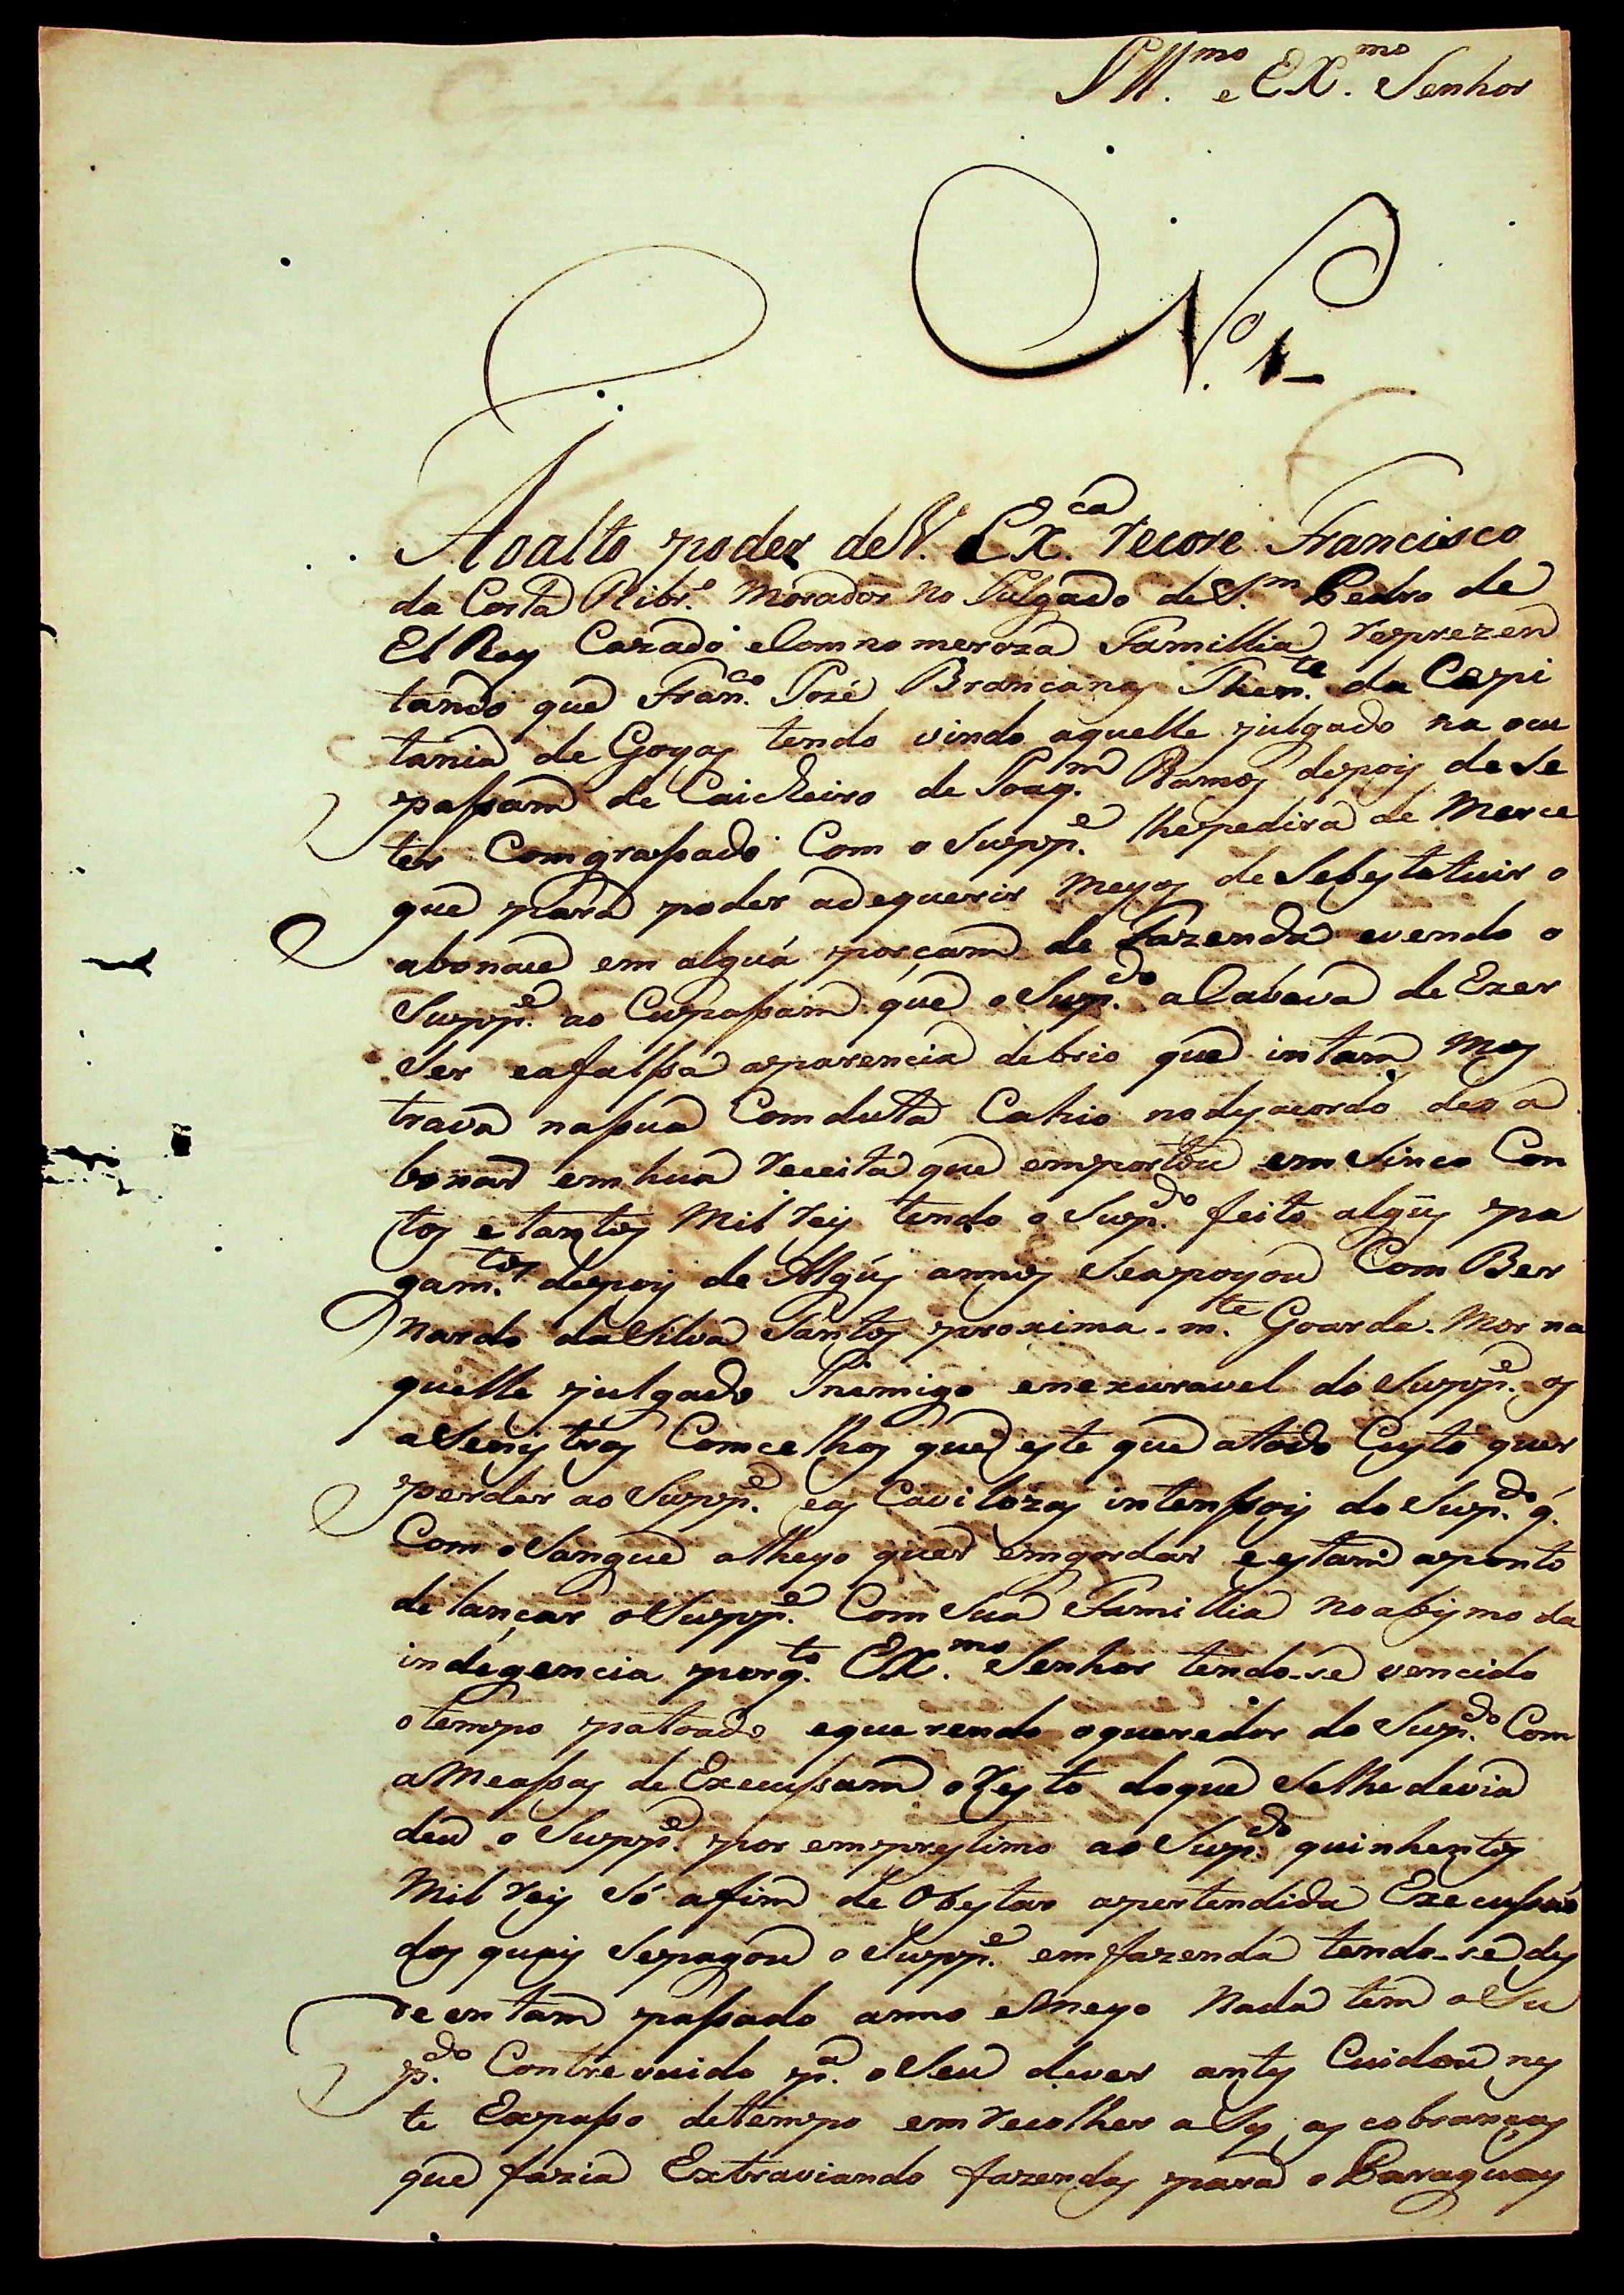 Ill.mo e EX.mo Senhor
N.º 1
Aoalto poder deV. Ex.ca recore Francisco
da Costa Ribr.º Morador no Julgado de S.m Pedro de
El Rey Cazado eComnomeroza Famillia reprezen
tando que Fran.co José Brancanes Then.te da Capi
tania de Goyas tendo vindo aquelle julgado na ocu
pasam de Caicheiro de Joaq.m Ramos depois de se
ter Comgrasado Com o Supp.e lhepedira de Merce
que para poder adequerir Meyos de Sebestetuir o
abonace em alguá porçam de Fazenda evendo o
Supp.e ao Cupasam que o Sup.do aCabava de Exer
ser eafalsa aparencia debrio que intam Mos
trava nasua Comduta Cahio nodesacordo deo a
bonar emhua receita que emportou em Sinco Con
tos etantos Mil reis tendo o Sup.do feito algũs pa
gam.tos depois de Algús annos Seapoyou Com Ber
nardo daSilva Santos proxima-m.te Goarda-Mor na
quelle julgado Inimigo enexuravel do Supp.e os
aSenistros Comcelhos que este que atodo Custo quer
perder ao Supp.e eas Cavilozas intensois do Sup.do q.
Com oSangue alheyo quer emgordar eestam aponto
de lançar oSupp.e Com Sua Famillia noabismo da
indegencia porq.to EX.mo Senhor tendo-se vencido
otempo patoado equerendo oqueredor do Sup.do Com
aMeasas de Execusam oResto doque Selhe devia
deu o Supp.e por emprestimo ao Sup.do quinhentos
Mil reis Só afim de Obestar apertendida Execusão
dos quais Sepagou o Supp.e emfazenda tendo-se des
de entam pasado anno eMeyo Nada tem oSu
p.do Contrevuido p.a oSeu dever antes Cuidou nes
te Expaso detempo emrecolher aSy as cobranças
que fazia Extraviando fazendas para o Paraguay